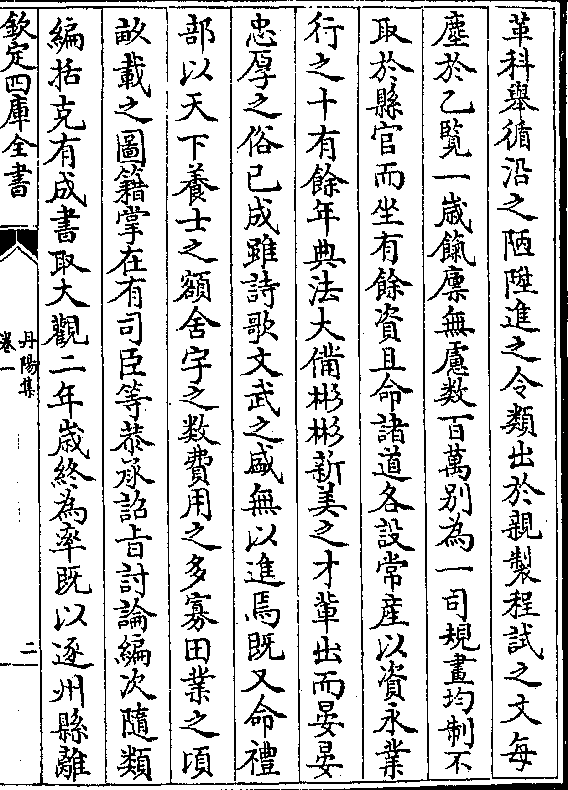 革科舉循沿之陋陞進之令類出於親製程試之文每
塵於乙覽一歲餼廪無慮数百萬别為一司規畫均制不
取於縣官而坐有餘資且命諸道各設常産以資永業
行之十有餘年典法大備彬彬新美之才軰出而晏晏
忠厚之俗已成雖詩歌文武之盛無以進焉既又命禮
部以天下養士之額舍宇之数費用之多寡田業之頃
畝載之圖籍掌在有司臣等恭承詔㫖討論編次隨類
編括克有成書取大觀二年歲終為率既以逐州縣離
欽定四庫全書
丹陽集
卷一
二